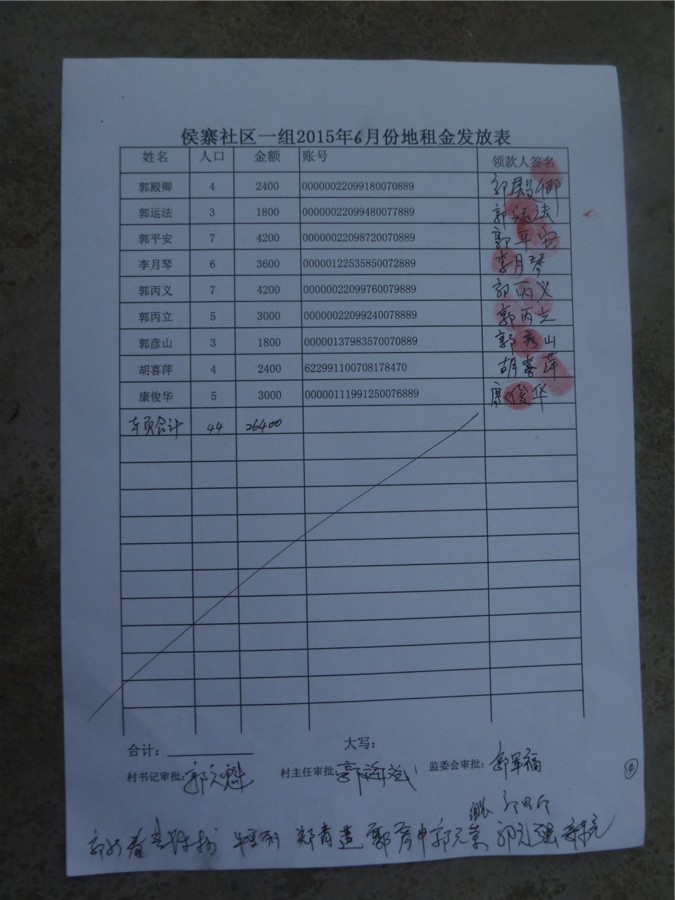 侯寨社区一组2015年6月份地租金发放表
姓名 人口 金额 账号 领款人签名
郭殿卿 4 2400 00000022099180070889 郭殿卿
郭运法 3 1800 00000022099480077889 郭运法
郭平安 7 4200 00000022098720070889 郭平安
李月琴 6 3600 00000122535850072889 李月琴
郭丙义 7 4200 00000022099760079889 郭丙义
郭丙立 5 3000 00000022099240078889 郭丙立
郭彦山 3 1800 00000137983570070889 郭秀山
胡喜萍 4 2400 622991100708178470 胡喜萍
康俊华 5 3000 00000111991250076889 康俊华
本页合计 44 26400
合计： 大写：
村书记审批： 郭元魁 村主任审批： 郭海 监委会审批： 郭军福
郭 春 郑青莲 郭 申 郭元 郭